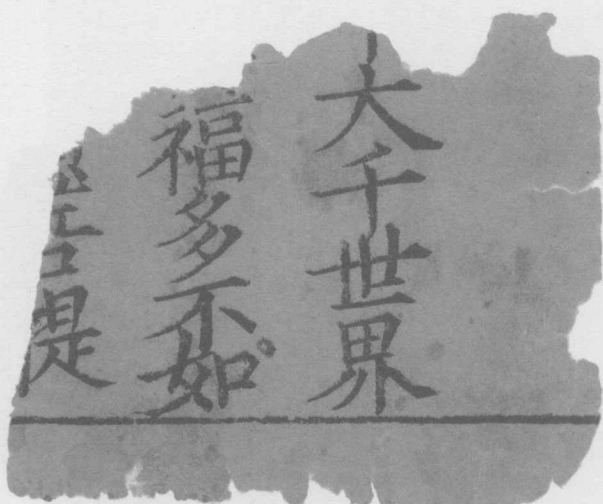 大千世界
福多不如。
提